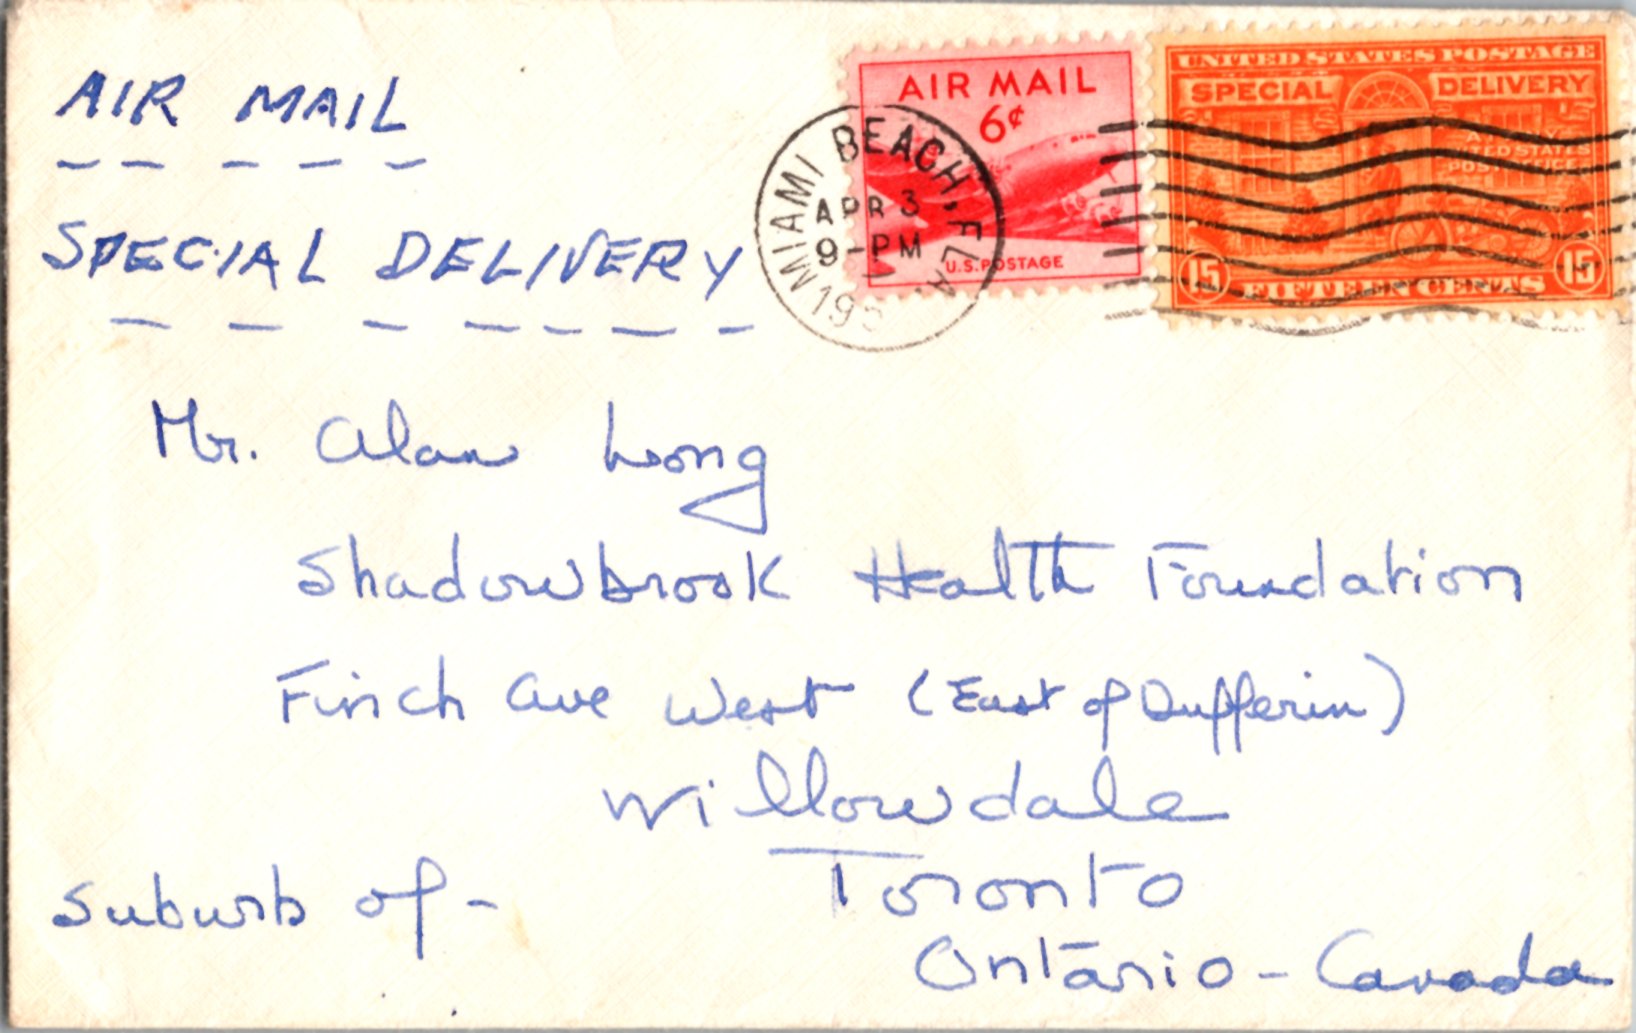 AIR MAIL
SPECIAL DELIVERY
AIR MAIL
6¢
U.S. POSTAGE
UNITED STATES POSTAGE
SPECIAL DELIVERY
AT ANY
UNITED STATES
POST OFFICE
15 FIFTEEN CENTS 15
MIAMI BEACH, FLA.
APR 3
9-PM
Mr. Alan Long
Shadowbrook Health Foundation
Finch Ave West (East of Dufferin)
Willowdale
Suburb of - Toronto
Ontario - Canada